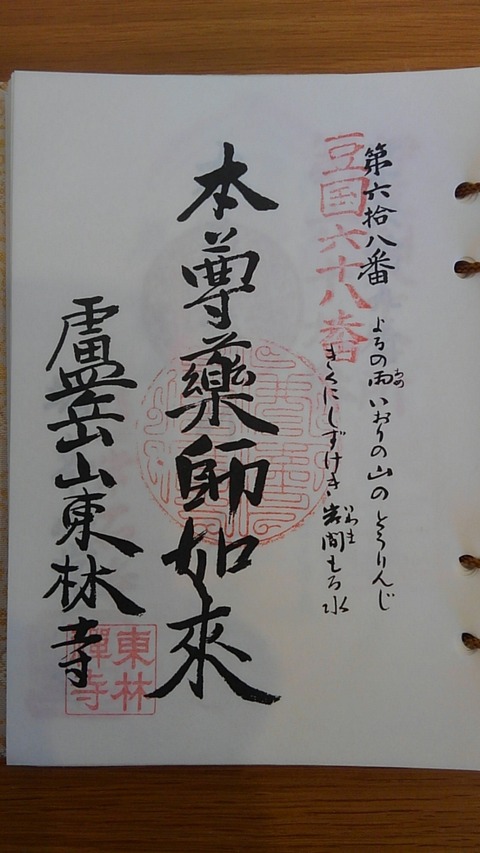 第六拾八番
豆国六十八番
よるの雨いおりの山のとうりんじ
あめ
きくにしずけき岩間もる水
いわま
本尊薬師如來
盧岳山東林寺
東林
禪寺